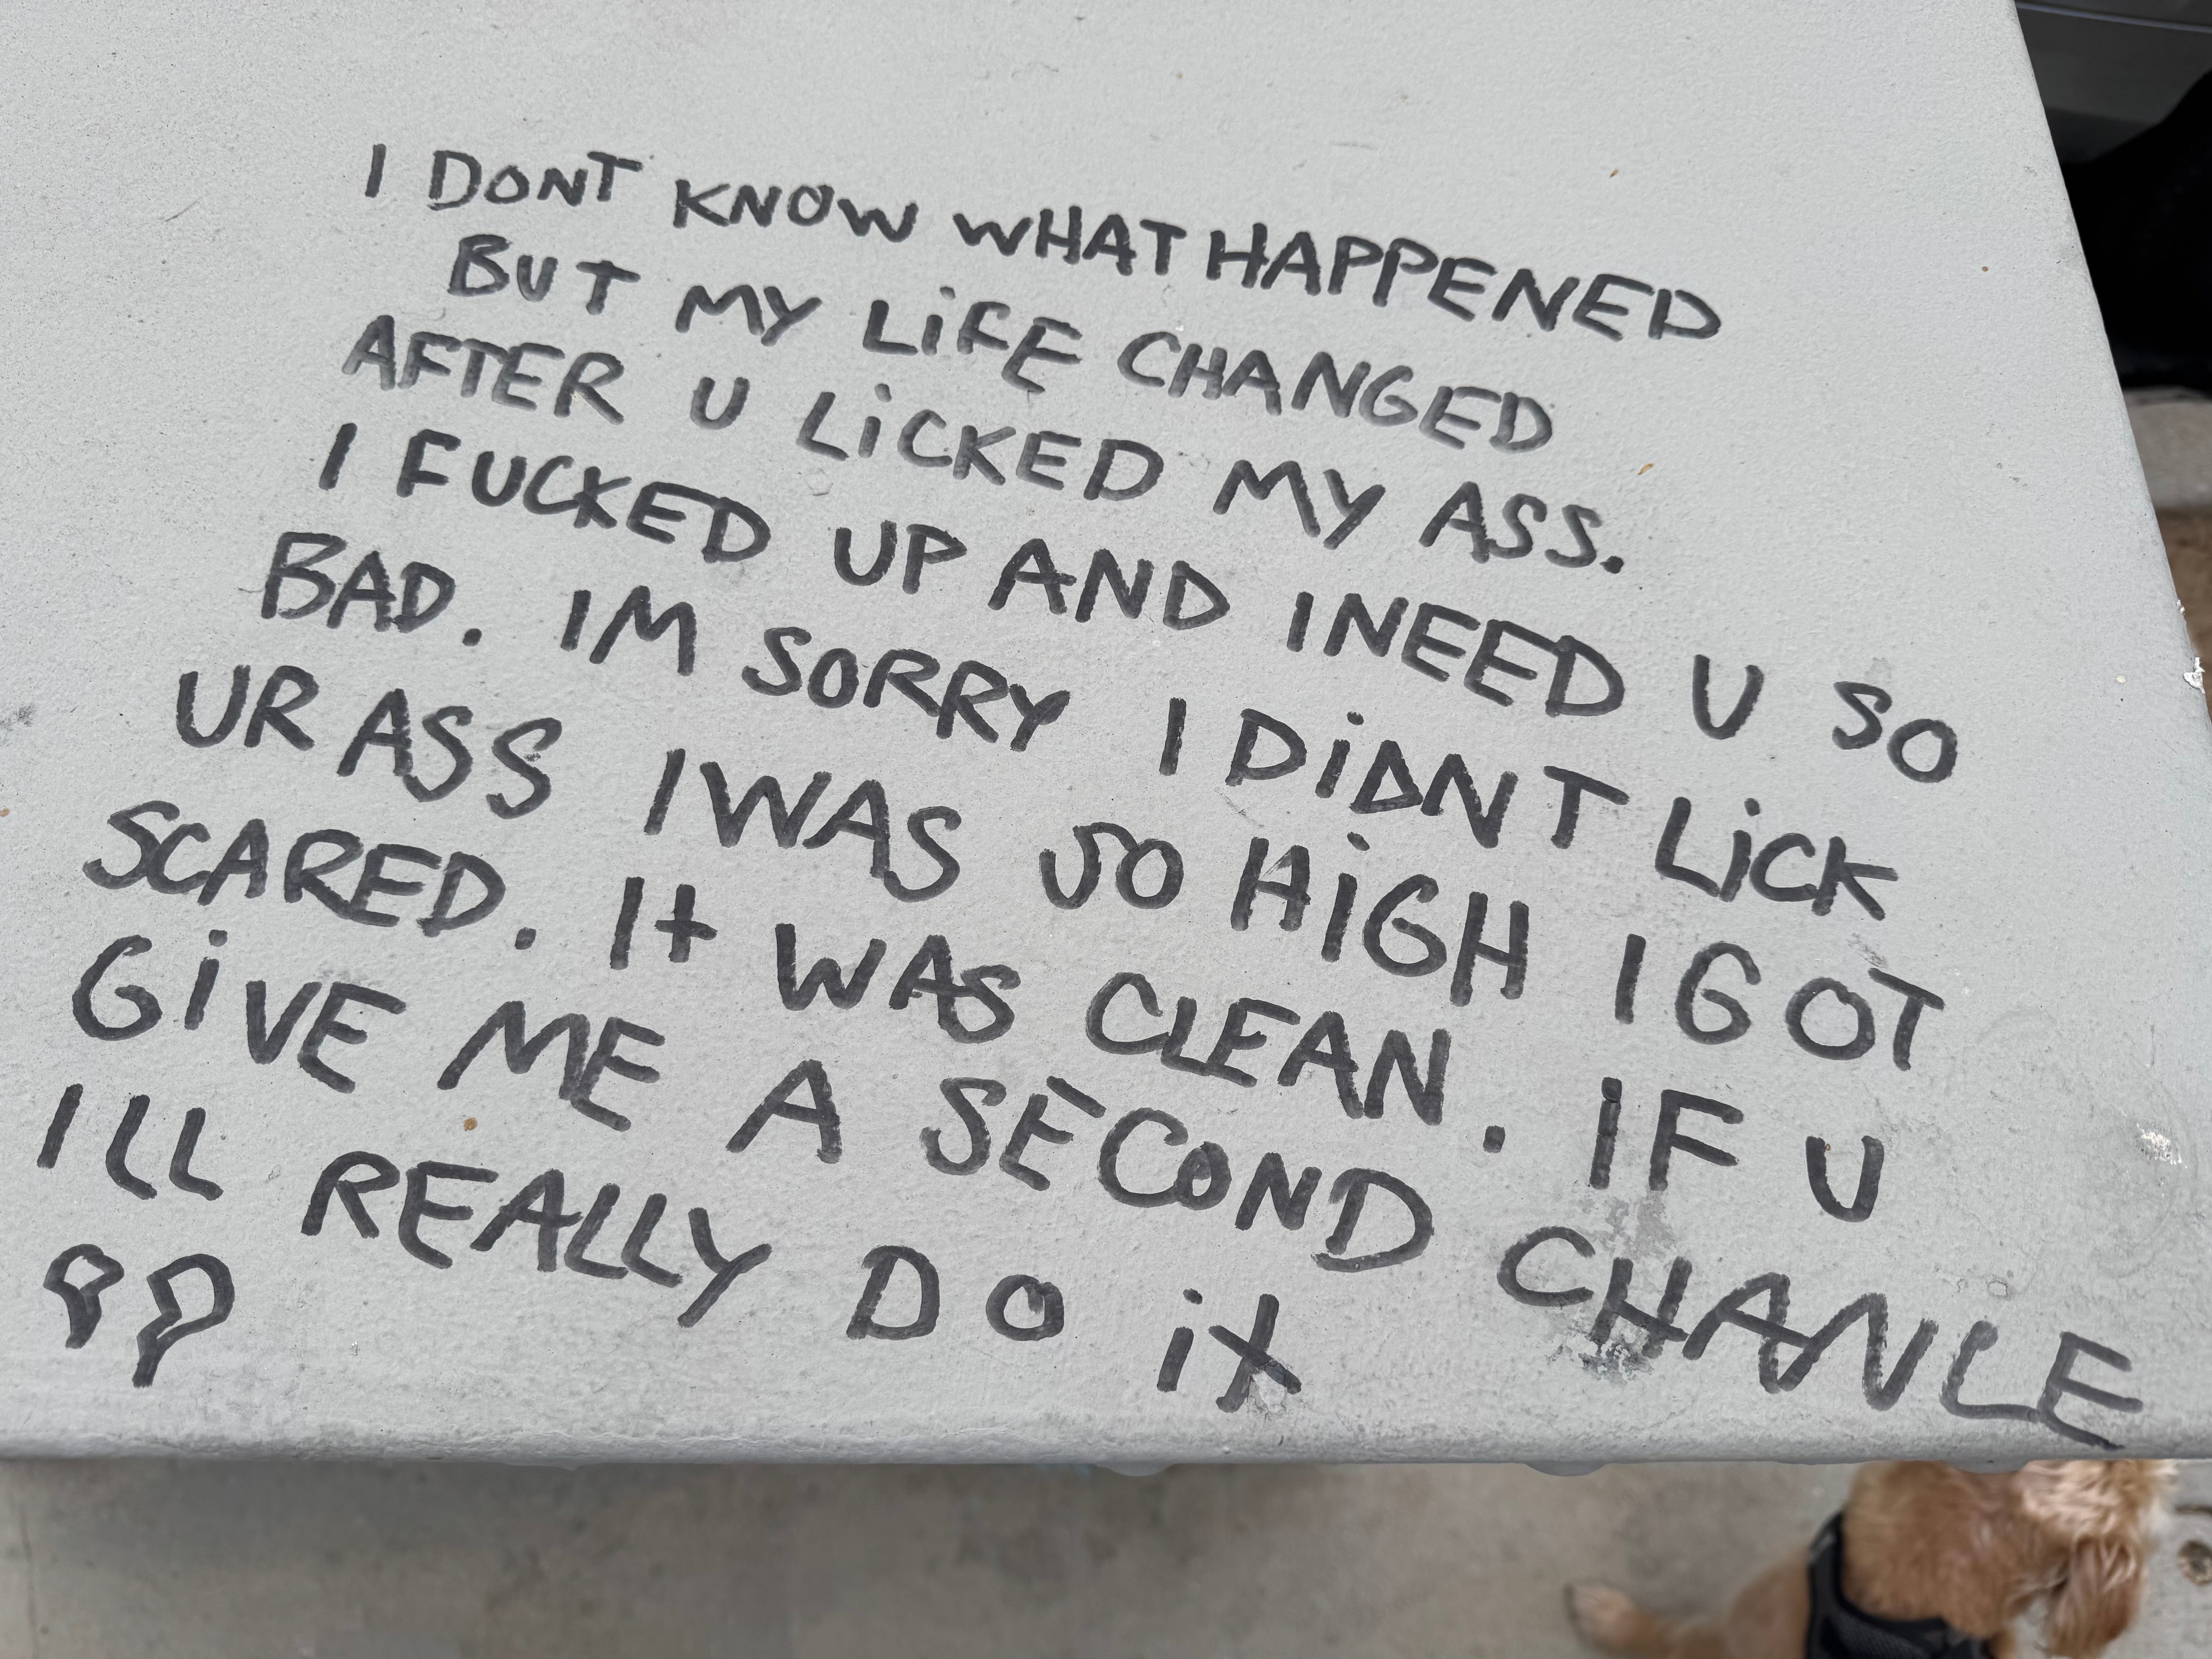 I DONT KNOW WHAT HAPPENED
BUT MY LiFE CHANGED
AFTER U LiCKED MY ASS.
I FUCKED UP AND I NEED U SO
BAD. IM SORRY I DiDNT LiCK
UR ASS I WAS SO HiGH I GOT
SCARED. It WAS CLEAN. IF U
GiVE ME A SECOND CHANCE
ILL REALLY DO it